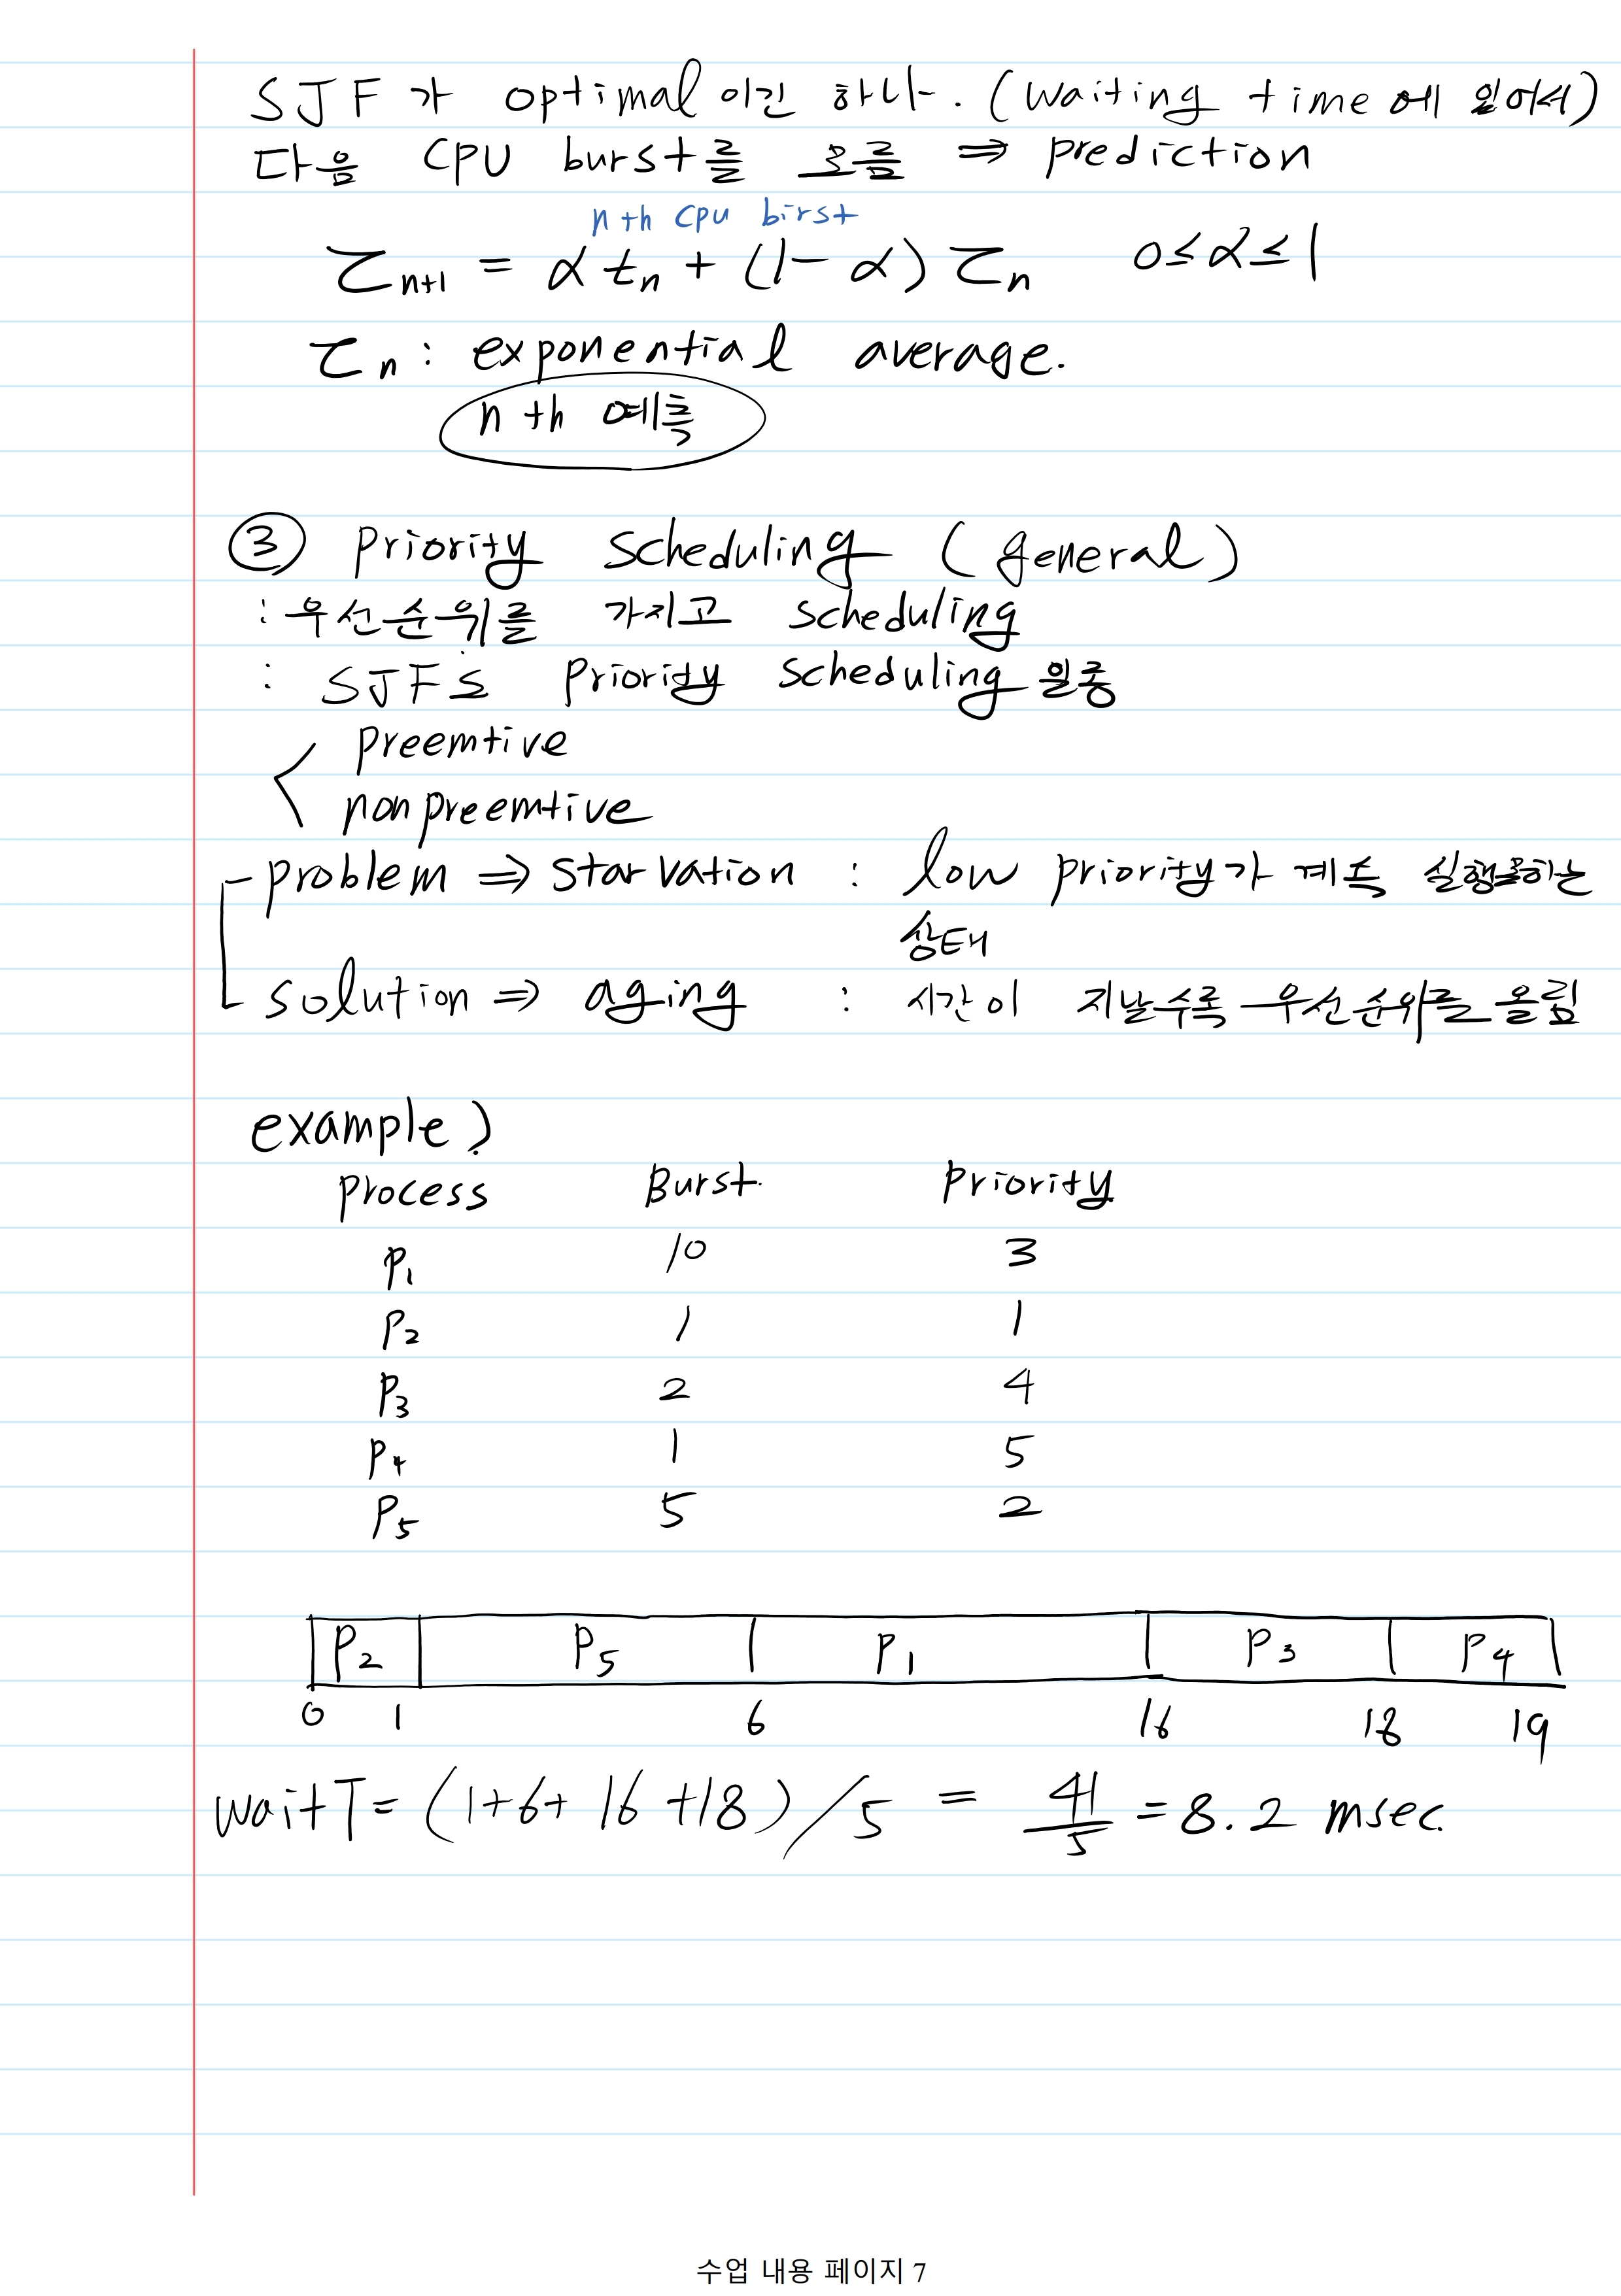 SJF가 optimal이긴 하나. (waiting time에 있어서)
다음 CPU burst를 모름 ⇒ prediction
nth cpu birst
τn+1 = α tn + (1-α) τn 0≤α≤1
τn : exponential average.
nth 예측
③ Priority Scheduling (general)
: 우선순위를 가지고 scheduling
: SJF는 Priority scheduling 일종
< preemtive
nonpreemtive
- problem ⇒ starvation : low priority가 계속 실행못하는
상태
- solution ⇒ aging : 시간이 지날수록 우선순위를 올림
example)
Process Burst. Priority
P1 10 3
P2 1 1
P3 2 4
P4 1 5
P5 5 2
P2 P5 P1 P3 P4
0 1 6 16 18 19
waitT = (1+6+16+18)/5 = 41/5 = 8.2 msec.
수업 내용 페이지 7